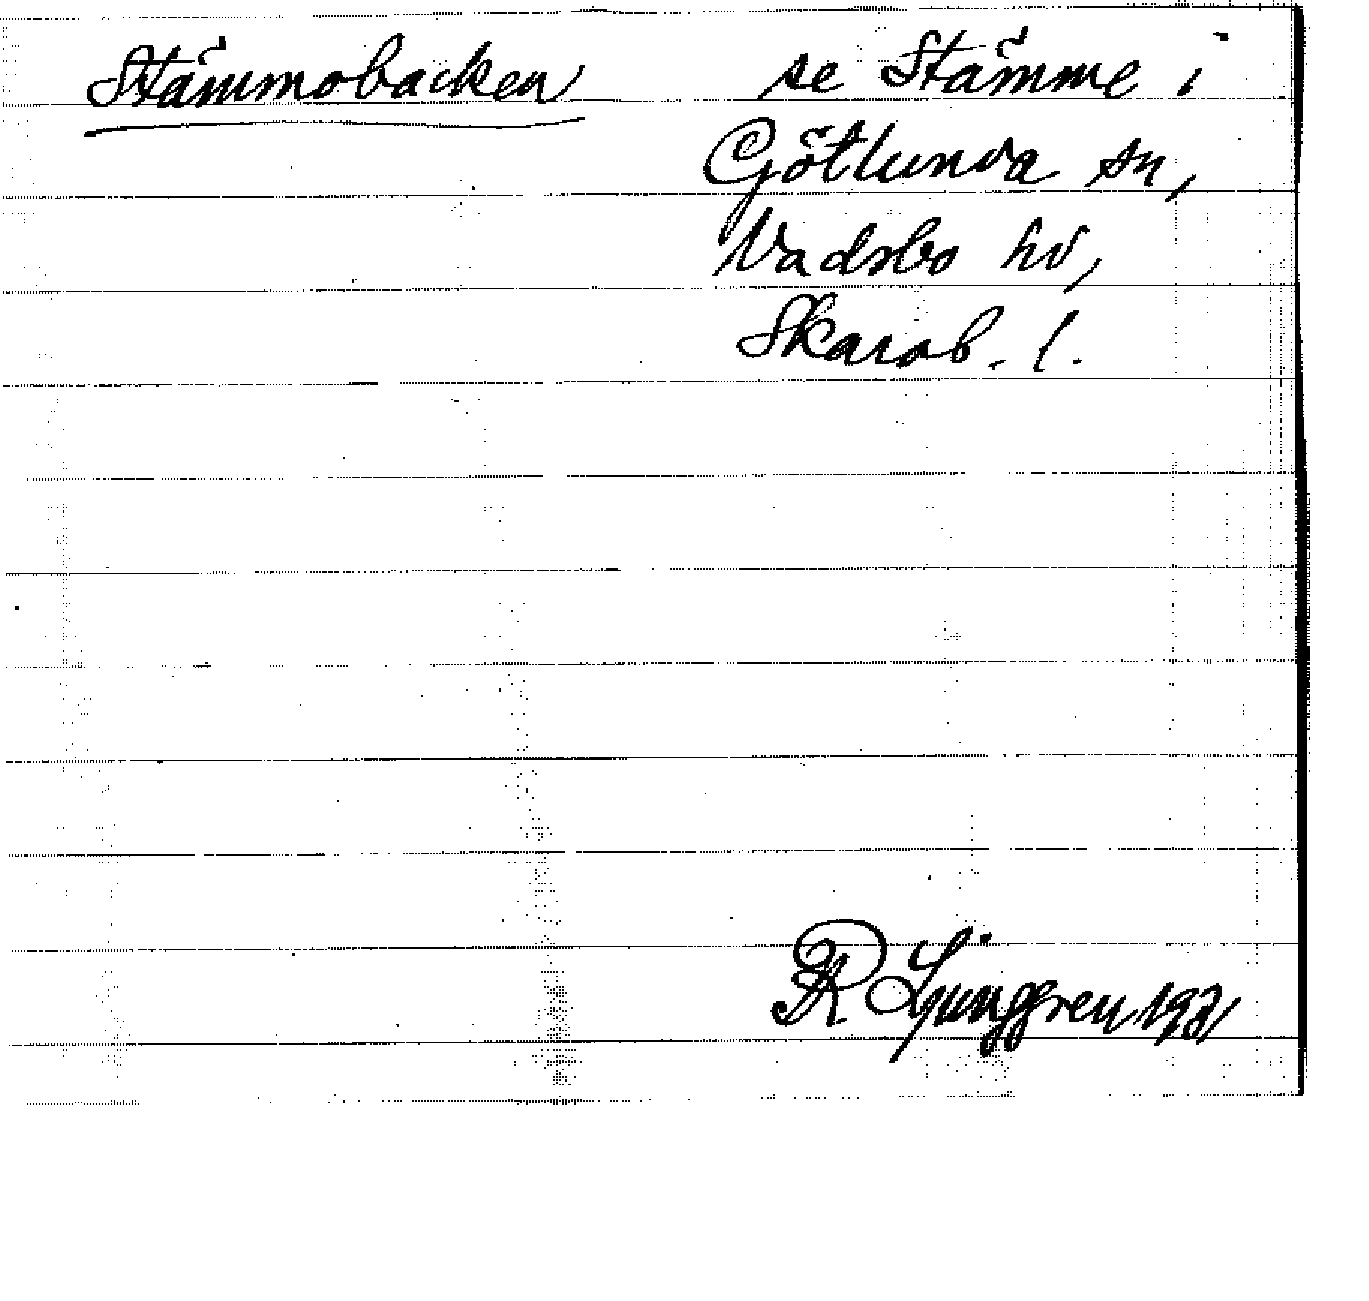 Stämmobacken se Stämme i
Götlunda sn,
Vadsbo hd,
Skarab. l.
R Ljunggren